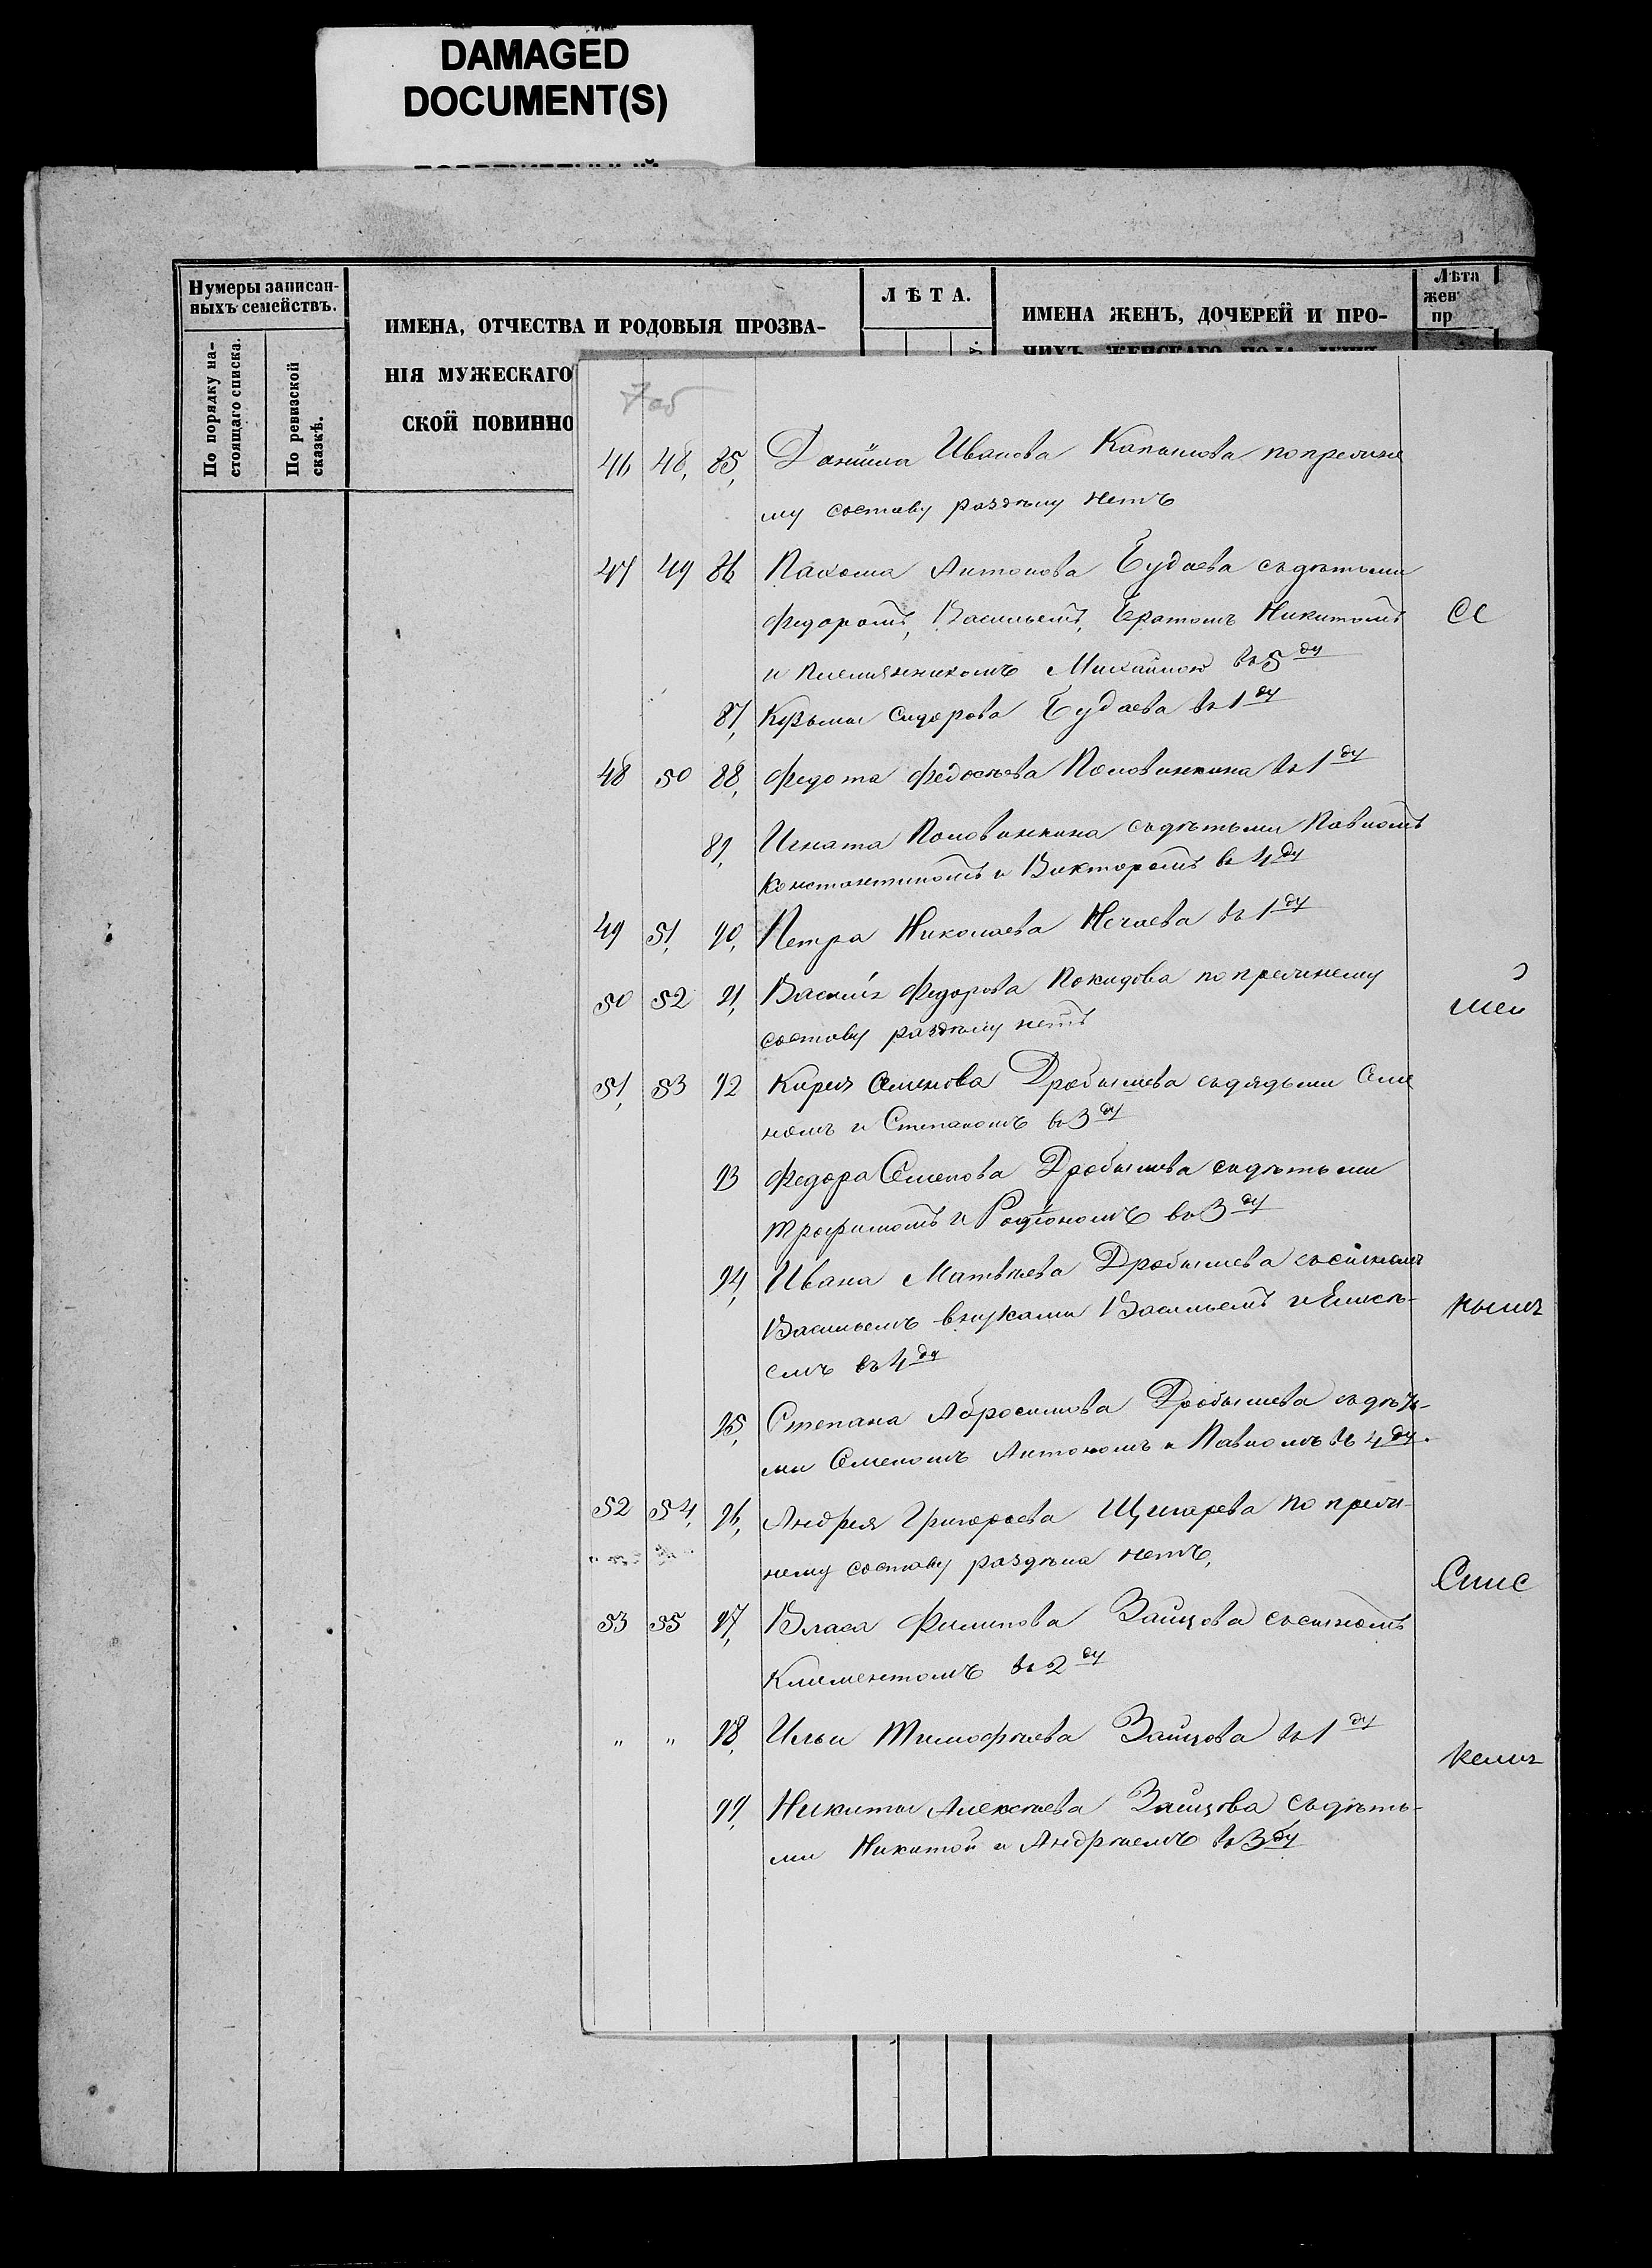 DAMAGED
DOCUMENT(S)
Нумеры записан-
ныхъ семействъ.
По порядку на-
стоящаго списка.
По ревизской
сказкѣ.
ИМЕНА, ОТЧЕСТВА И РОДОВЫЯ ПРОЗВА-
НІЯ МУЖЕСКАГО
СКОЙ ПОВИННО
ЛѢТА.
ИМЕНА ЖЕНЪ, ДОЧЕРЕЙ И ПРО-
ЧИХЪ ЖЕНСКАГО ПОЛА ДУШЪ
Лѣта
жен
пр
7 об
46 48, 85, Даниила Иванова по прежне
му составу раздѣлу нетъ
47 49 86 Пахома Антонова Будаева съ дѣтьми
Федоромъ, Васильемъ, Братомъ Никитомъ
и племянникомъ Михаиломъ въ 5 ду
87, Кузьмы Сидорова Будаева въ 1 ду
48 50 88, Федота Федосѣева Половинкина въ 1 ду
89, Игната Половинкина съ дѣтьми Павломъ
Константиномъ и Викторомъ въ 4 ду
49 51, 90, Петра Николаева Нечаева въ 1 ду
50 52 91, Василія Федорова Покидова по прежнему
составу раздѣлу нетъ
51, 53 92 Кирея Семенова Дробышева съ дядьми Семе
номъ и Степаномъ въ 3 ду
93 Федора Семенова Дробышева съ дѣтьми
Трофимомъ и Родіономъ въ 3 ду
94, Ивана Матвѣева Дробышева съ сыномъ
Васильемъ внуками Васильемъ и Елисѣ-
емъ въ 4 ду
95, Степана Абросимова Дробышева съ дѣть-
ми Семеномъ Антономъ и Павломъ въ 4 ду.
52 54, 96, Андрея Григорьева по преж-
нему составу раздѣла нетъ,
53 55 97, Власа Филипова Зайцова съ сыномъ
Климентомъ въ 2 ду
" " 98, Ильи Тимофѣева Зайцова въ 1 ду
99, Никиты Алексѣева Зайцова съ дѣть-
ми Никитой и Андрѣемъ въ 3 ду